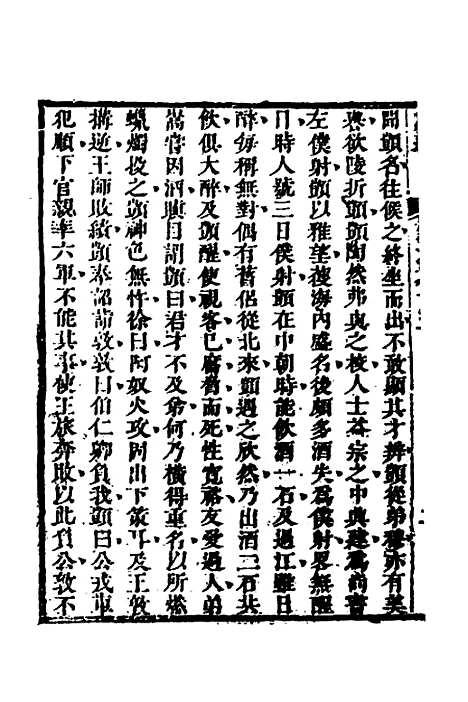 聞顗名往候之終坐而出不敢顯其才辨顗從弟穆亦有美
典欲陵折顗顗陶然弗與之校人士益宗之中興建爲尚書
左僕射顗以雅望獲海內盛名後頗多酒失爲僕射畧無醒
日時人號三日僕射顗在中朝時能飲酒一石及過江雖日
醉每稱無對偶有舊侶從北來顗遇之欣然乃出酒二石共
飲俱大醉及顗醒使視客已腐脅而死性寬裕友愛過人弟
嵩嘗因酒瞋目謂顗曰君才不及弟何乃橫得重名以所燃
蠟燭投之顗神色無忤徐曰阿奴火攻固出下策耳及王敦
搆逆王師敗績顗奉詔詣敦敦曰伯仁卿負我顗曰公戎車
犯順下官親率六軍不能其事使王旅奔敗以此負公敦不